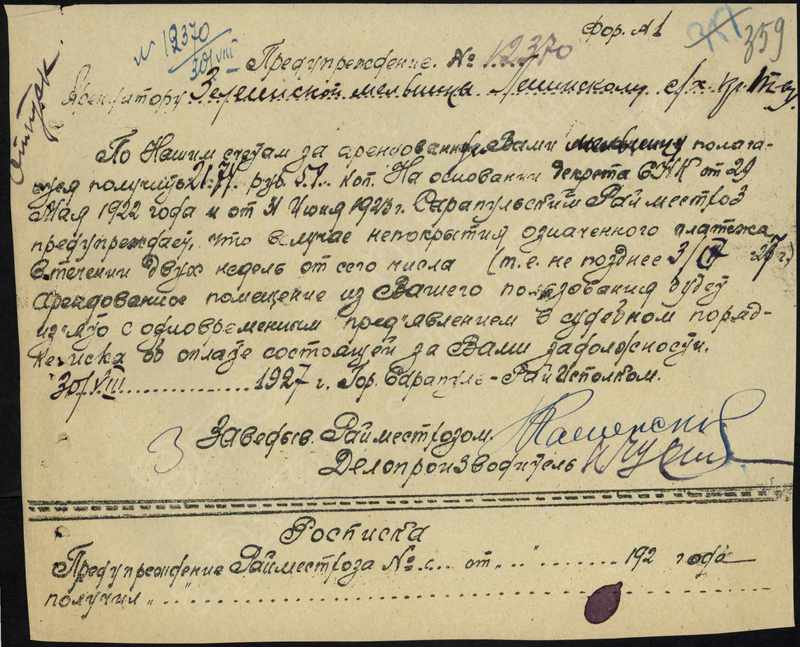 Фор. №1
359
N 12370
30/VIII
Предупреждение. № 12370
Арендатору мельницы. Ленинскому с/х
По Нашим счетам за арендованную Вами мельницу полага-
ется получить 21.74 руб. 51. коп. На основании Декрета СНК от 29
Мая 1922 года и от 21 Июня 1923 г. Сарапульский Райместхоз
предупреждает, что в случае непокрытия означенного платежа
в течении двух недель от сего числа (т.е. не позднее 3/IX 27 г.)
арендованное помещение из Вашего пользования будет
изъято с одновременным предъявлением в судебном поряд-
ке иска об оплате состоящей за Вами задолжности.
30/VIII 1927 г. Гор. Сарапуль - РайИсполком.
Заведыв. Райместхозом
Делопроизводитель
3
Росписка
Предупреждение Райместхоза № с... от „..“ ........ 192 года
получил „..“